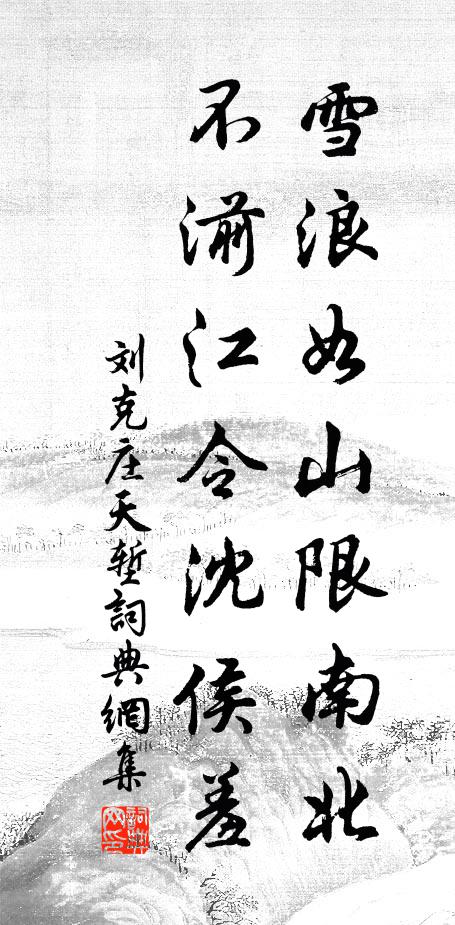 雪浪如山限南北
不湔江令沈侯羞
刘克庄天塹詞典網集